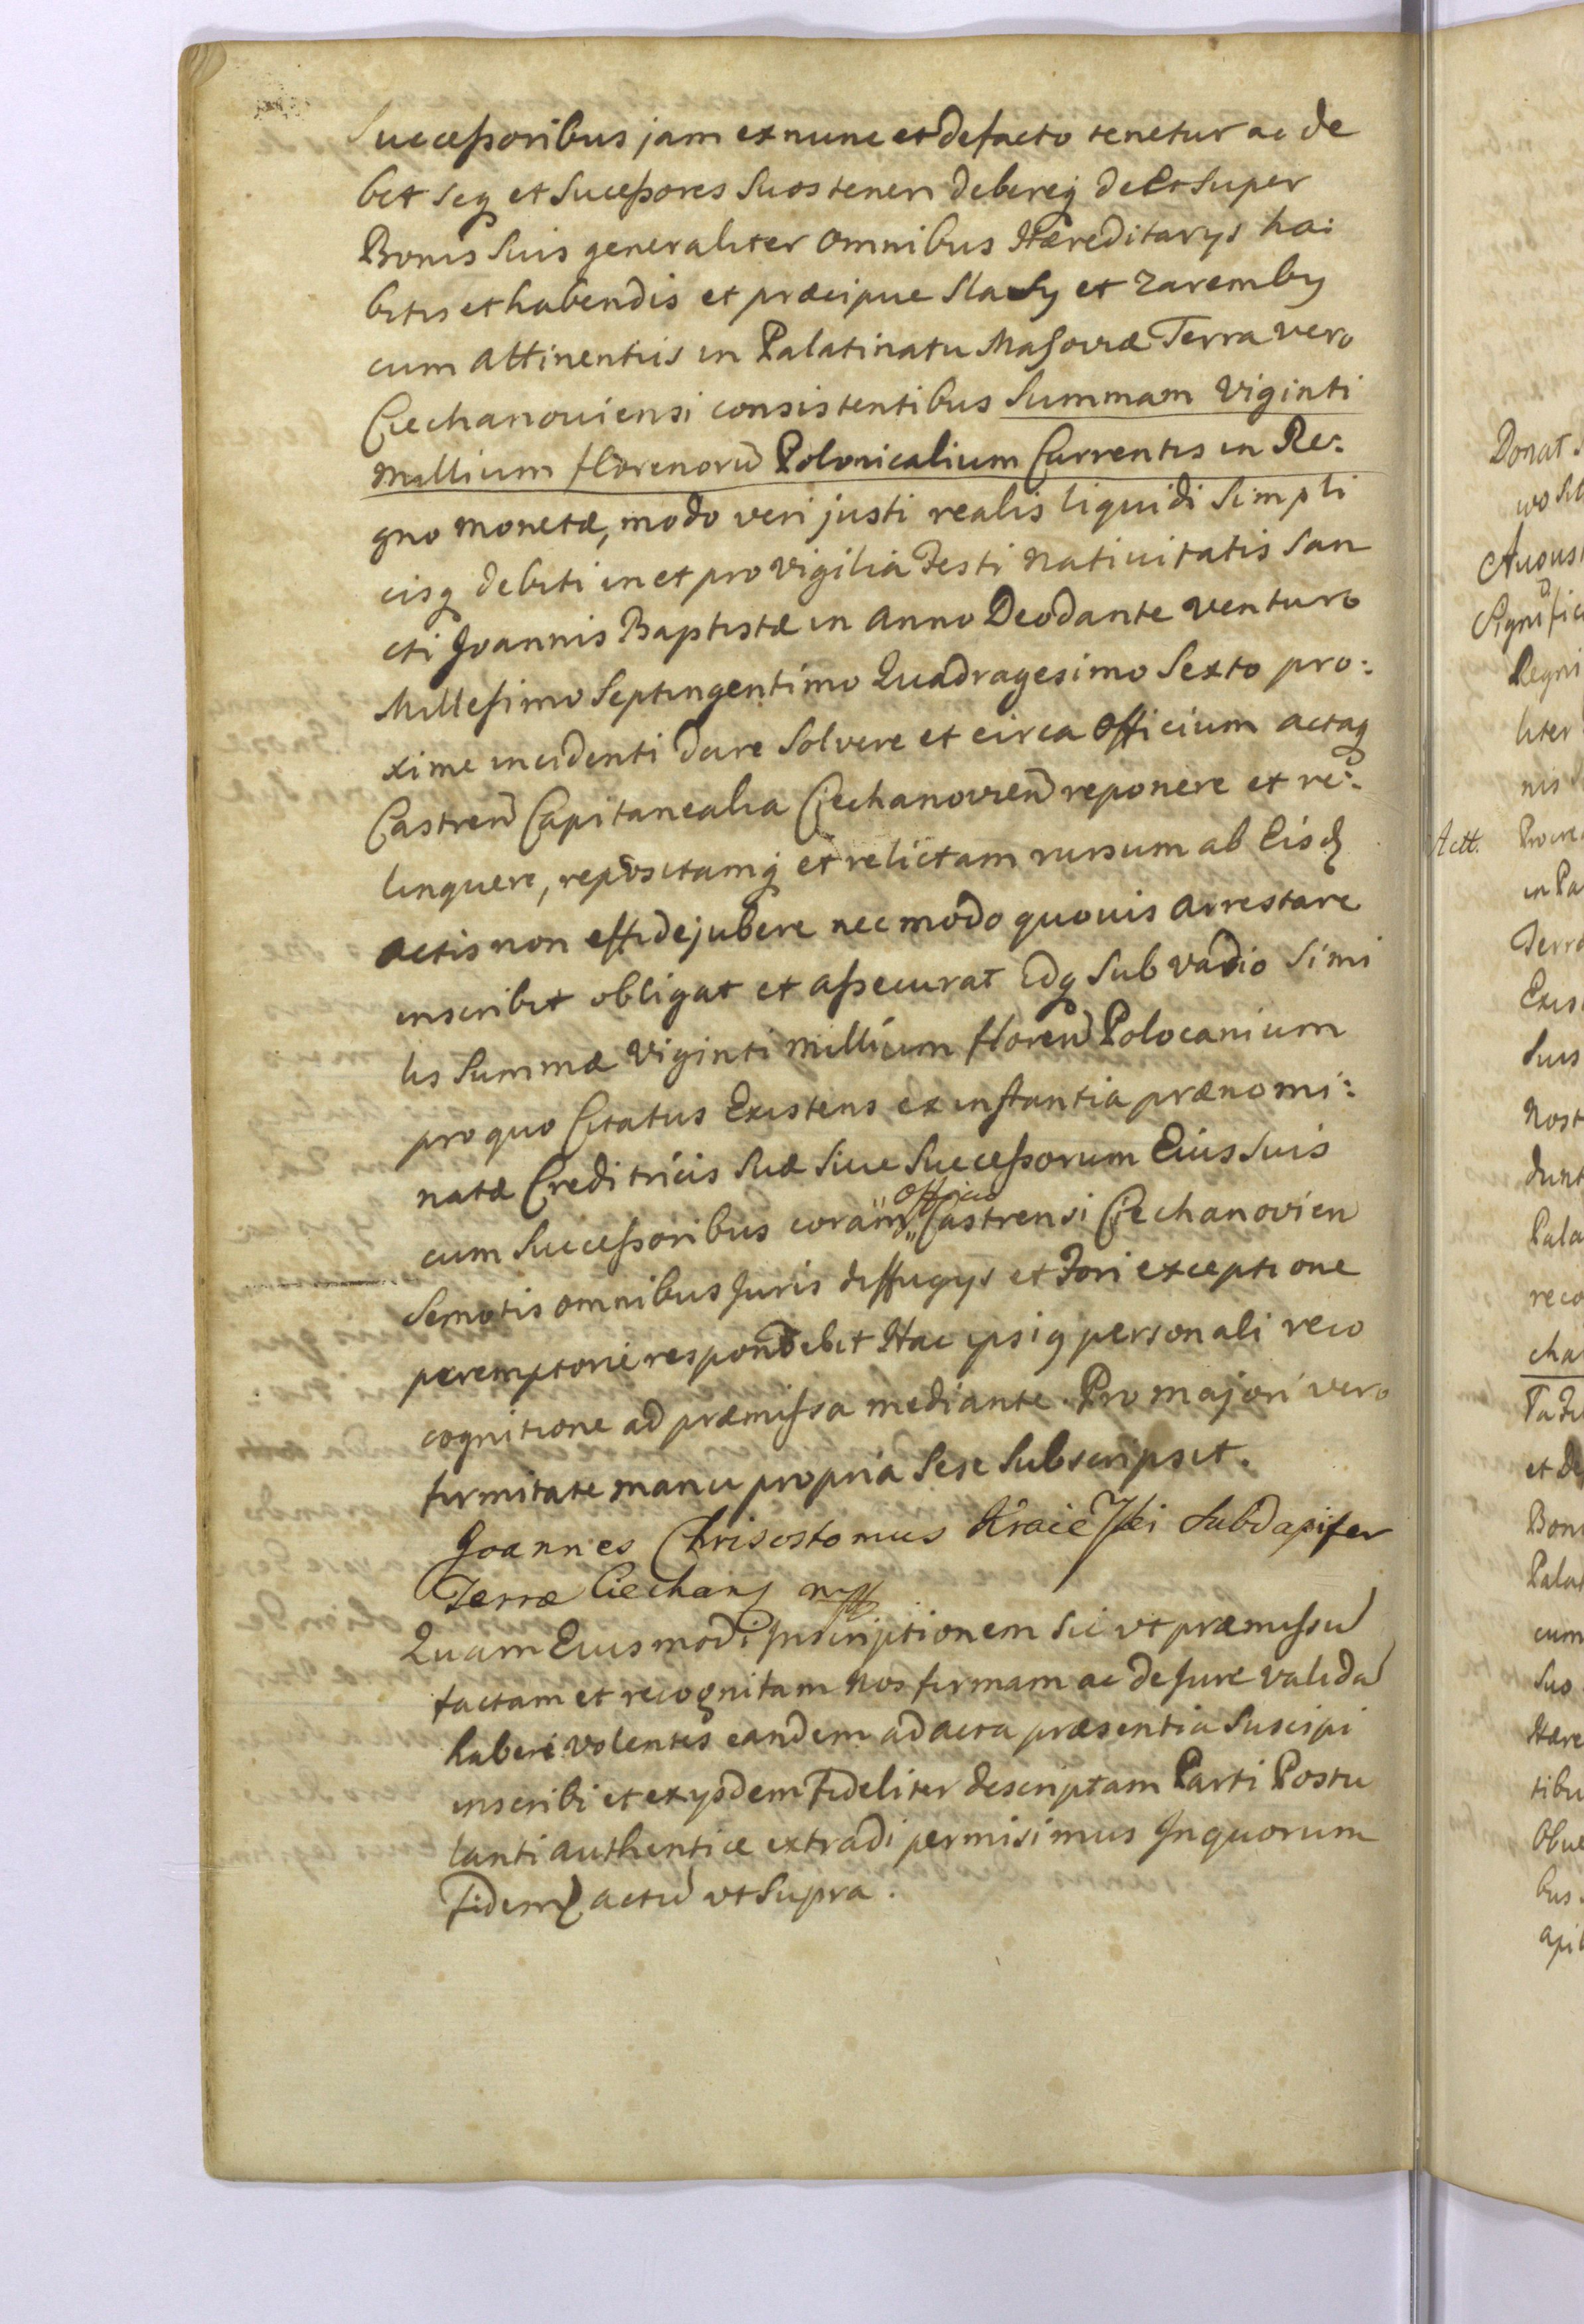 Successoribus jam ex nunc et de facto tenetur ac de
bet seq et Sucessores Suos teneri debereq de Et Super
Bonis Suis generaliter omnibus Hæreditarys ha:
bitis et habendis et præcipue Slasy et Zaremby
cum attinentiis in Palatinatu Masoviæ Terra vero
Ciechanoviensi consistentibus Summam Viginti
Millium florenorū Polonicalium Currentis in Re:
gno monetæ, modo veri justi realis liquidi Simpli
cisq debiti in et pro Vigilia Festi Nativitatis San
cti Joannis Baptistæ in Anno Deo dante venturo
Millesimo Septingentimo Quadragesimo Sexto pro:
xime incidenti dare Solvere et circa Officium actaq
Castren Capitanealia Ciechanovien reponere et re:
linquere, repositamq et relictam rursum ab Eisd
actis non effidejubere nec modo quovis arrestare
inscribit obligat et assecurat Idq Sub vadio Simi
lis Summæ Viginti Millium floren Polocanium
pro quo Citatus Existens ex instantia prænomi:
natæ Creditricis Suæ Sive Successorum Eius Suis
cum Successoribus coram "Officio" Castrensi Ciechanovien
Semotis omnibus Juris diffugys et Fori exceptione
peremptorie respondebit Hac ipsiq personali reco
cognitione ad præmissa mediante. Pro majori vero
firmitate manu propria Sese Subscripsit.
Joannes Chrisostomus Kraiewski Subdapifer
Terræ Ciechan mpp
Quam Eius modi Inscriptionem Sic ut præmissū
factam et recognitam Nos firmam ac de Jure validā
haberi volentes eandem ad acta præsentia Suscipi
inscribi et ex ysdem Fideliter descriptam Parti Postu
lanti authentice extradi permisimus In quorum
Fidem actū ut Supra.
Donat
Augus
Signific
Regni
liter
nis
Act.
in Pa
Terra
Exis
Suis
Nost
dunt
Pala
reco
cha
et de
Boni
Palat
cum
Suo
Hære
tibu
Obve
bus
api